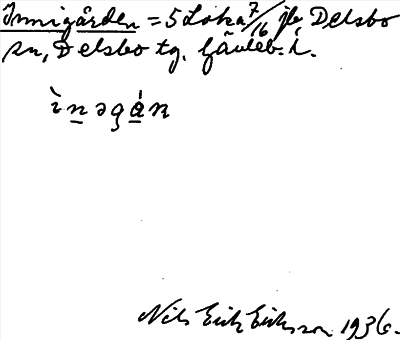 Innigården = 5 Loka 7/16 jb Delsbo
sn, Delsbo tg. Gävleb. l.
ìnəgá̱n
Nils Erik Eriksson 1936.